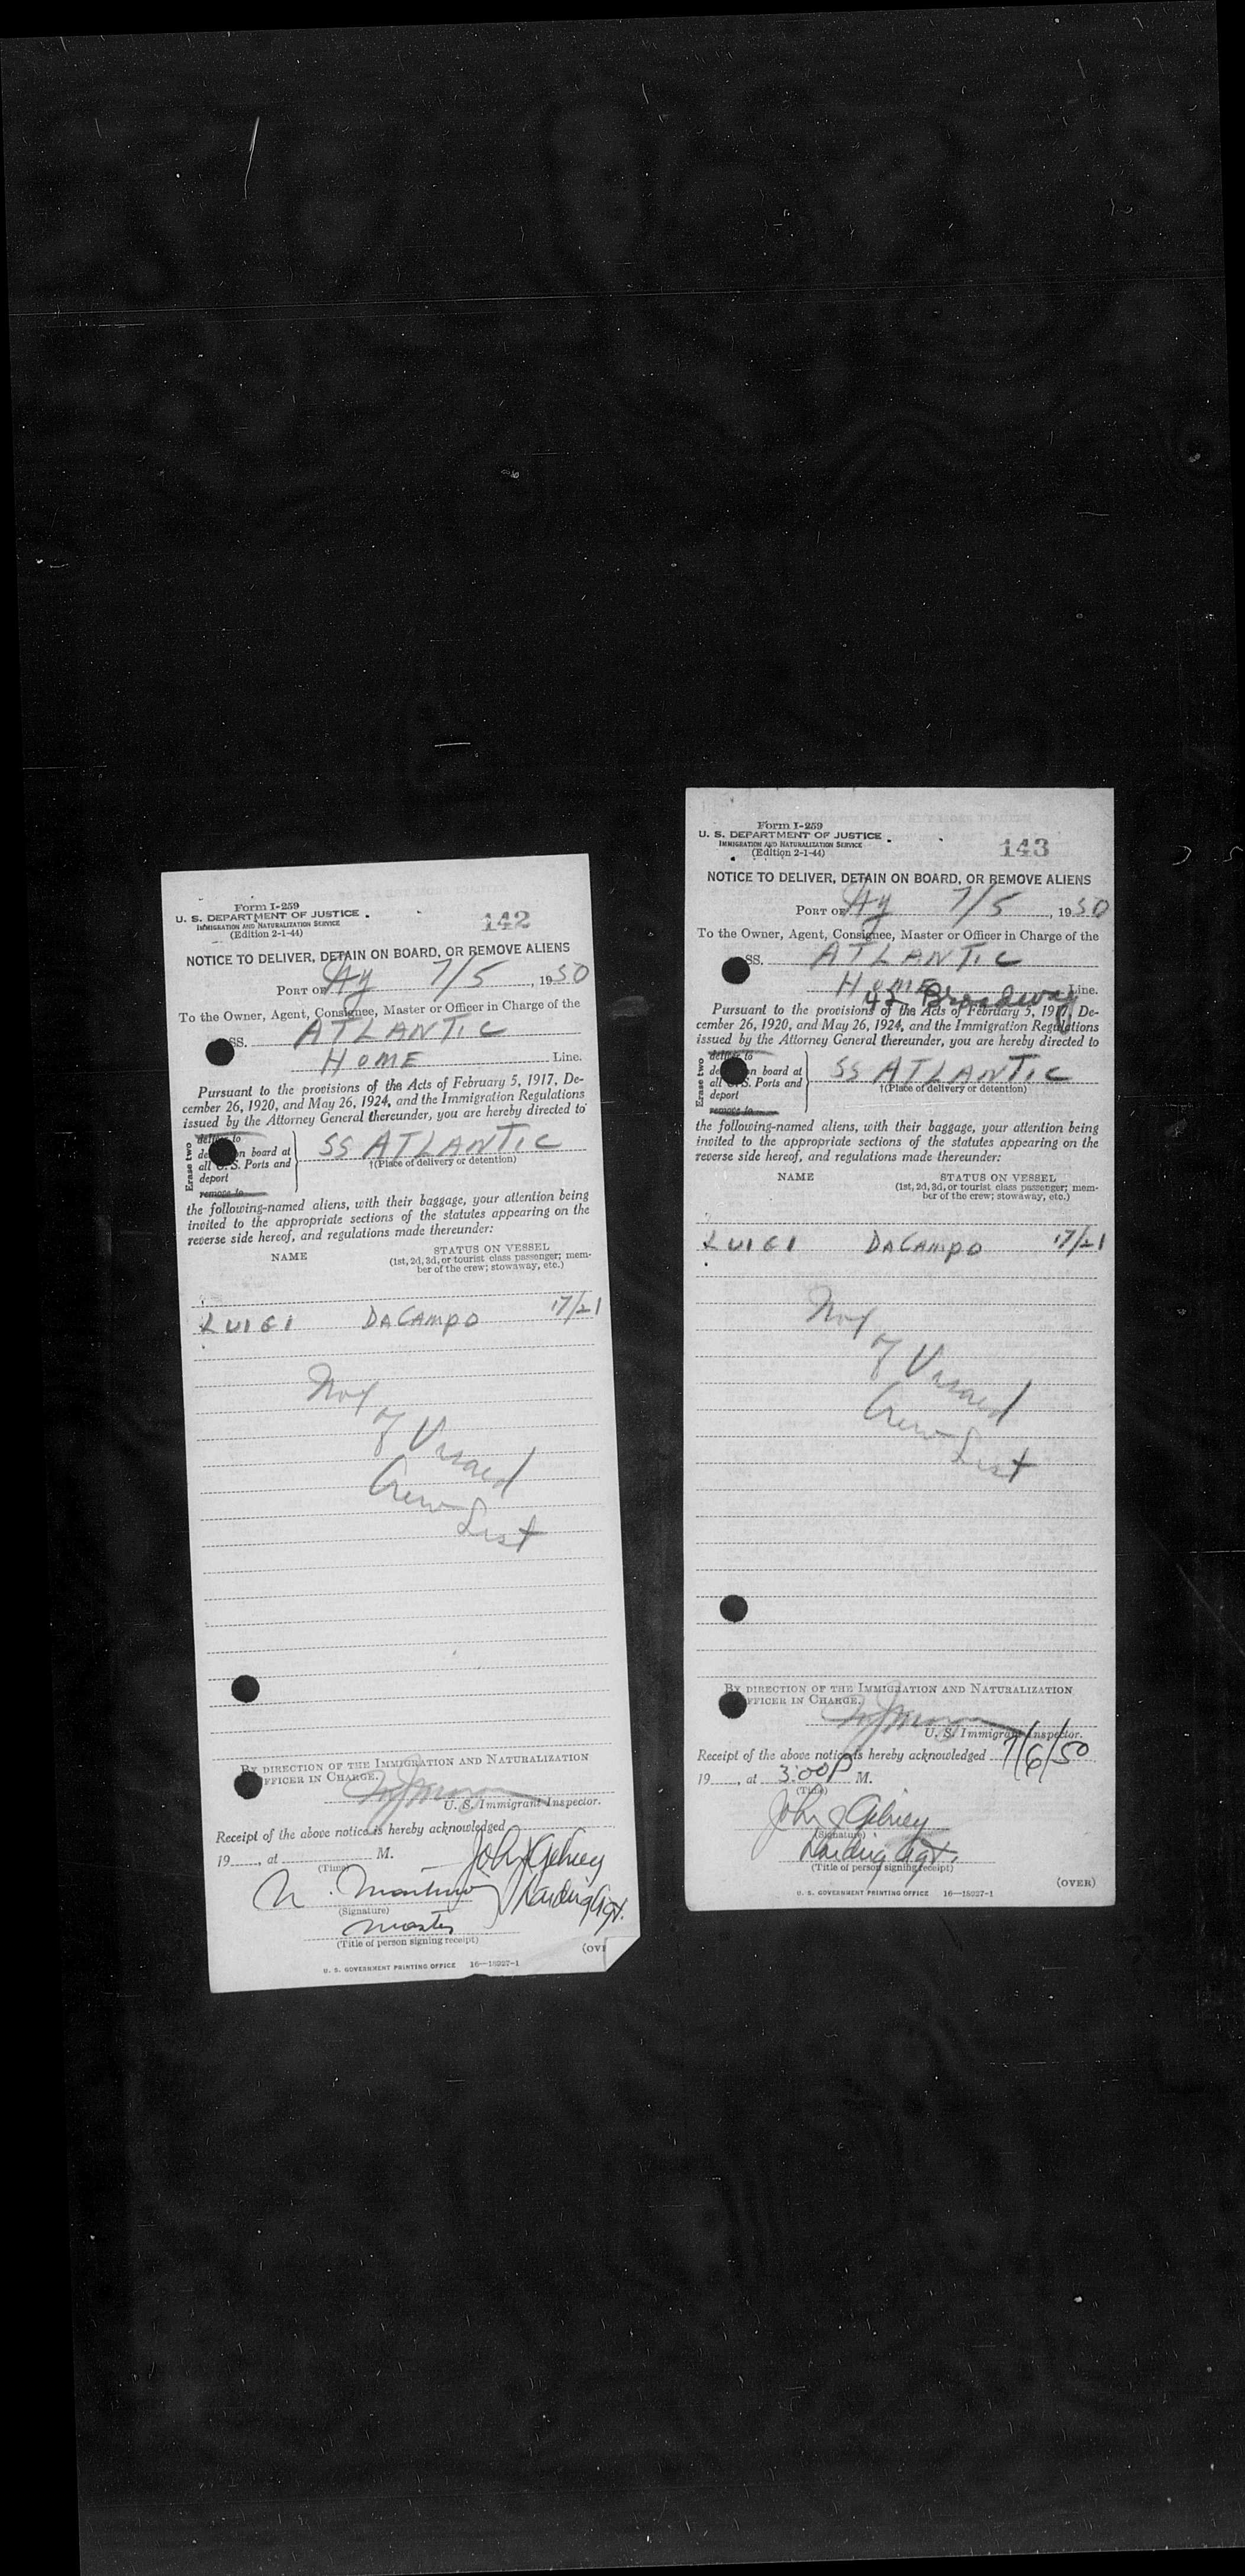 Form I-259
U. S. DEPARTMENT OF JUSTICE
IMMIGRATION AND NATURALIZATION SERVICE
(Edition 2-1-44)
142
NOTICE TO DELIVER, DETAIN ON BOARD, OR REMOVE ALIENS
PORT OF 7/5, 1950
To the Owner, Agent, Consignee, Master or Officer in Charge of the
SS. ATLANTIC
HOME Line.
Pursuant to the provisions of the Acts of February 5, 1917, De-
cember 26, 1920, and May 26, 1924, and the Immigration Regulations
issued by the Attorney General thereunder, you are hereby directed to
Erase two
deliver to
on board at
all U. S. Ports and
deport
remove to
SS ATLANTIC
†(Place of delivery or detention)
the following-named aliens, with their baggage, your attention being
invited to the appropriate sections of the statutes appearing on the
reverse side hereof, and regulations made thereunder:
NAME
STATUS ON VESSEL
(1st, 2d, 3d, or tourist class passenger; mem-
ber of the crew; stowaway, etc.)
LUIGI DACAMPO 17/21
Crew List
BY DIRECTION OF THE IMMIGRATION AND NATURALIZATION
OFFICER IN CHARGE.
U. S. Immigrant Inspector.
Receipt of the above notice is hereby acknowledged
19, at M.
(Time)
John
(Signature)
Master
(Title of person signing receipt)
U. S. GOVERNMENT PRINTING OFFICE 16-18327-1
Form I-259
U. S. DEPARTMENT OF JUSTICE
IMMIGRATION AND NATURALIZATION SERVICE
(Edition 2-1-44)
143
NOTICE TO DELIVER, DETAIN ON BOARD, OR REMOVE ALIENS
PORT OF 7/5, 1950
To the Owner, Agent, Consignee, Master or Officer in Charge of the
SS. ATLANTIC
HOME Line.
42 Broadway
Pursuant to the provisions of the Acts of February 5, 1917, De-
cember 26, 1920, and May 26, 1924, and the Immigration Regulations
issued by the Attorney General thereunder, you are hereby directed to
Erase two
deliver to
on board at
all U. S. Ports and
deport
remove to
SS ATLANTIC
†(Place of delivery or detention)
the following-named aliens, with their baggage, your attention being
invited to the appropriate sections of the statutes appearing on the
reverse side hereof, and regulations made thereunder:
NAME
STATUS ON VESSEL
(1st, 2d, 3d, or tourist class passenger; mem-
ber of the crew; stowaway, etc.)
LUIGI DACAMPO 17/21
Crew List
BY DIRECTION OF THE IMMIGRATION AND NATURALIZATION
OFFICER IN CHARGE.
U. S. Immigrant Inspector.
Receipt of the above notice is hereby acknowledged 7/6/50
19, at 3:00 P M.
(Time)
John
(Signature)
(Title of person signing receipt)
(OVER)
U. S. GOVERNMENT PRINTING OFFICE 16-18327-1